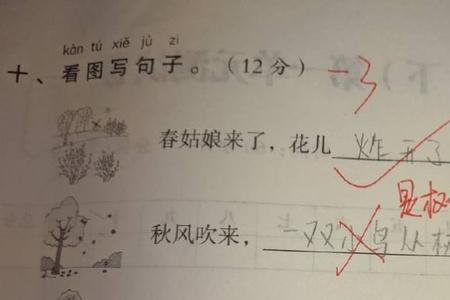 kàn tú xiě jù zi
十、看图写句子。（12 分） -3
春姑娘来了，花儿 炸开了
是枝
秋风吹来，一双小鸟从